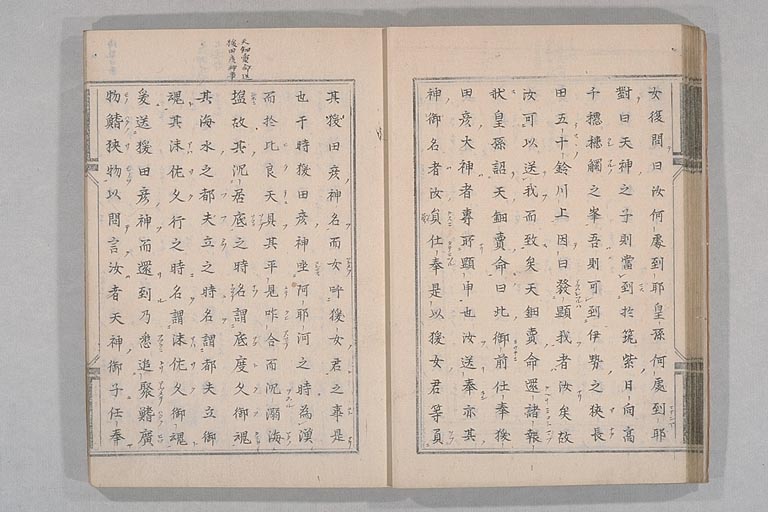 女復問曰汝何處到耶皇孫何處到耶
對曰天神之子則當到於筑紫日向高
千穗槵觸之峯吾則可到伊勢之狹長
田五十鈴川上因曰發顯我者汝矣故
汝可以送我而致矣天鈿賣命還詣報
狀皇孫詔天鈿賣命曰此御前仕奉猨
田彦大神者專所顯申也汝送奉亦其
神御名者汝負仕奉是以猨女君等負
天鈿賣命送
猨田彦神事
其猨田彦神名而女呼猨女君之事是
也于時猨田彦神坐阿耶河之時為漁
而於比良夫貝其手見咋合而沉溺海
塩故其沉居底之時名謂底度久御魂
其海水之都夫立之時名謂都夫立御
魂其沫佐久行之時名謂沫佐久御魂
爰送猨田彦神而還到乃悉追聚鰭廣
物鰭狹物以問言汝者天神御子仕奉